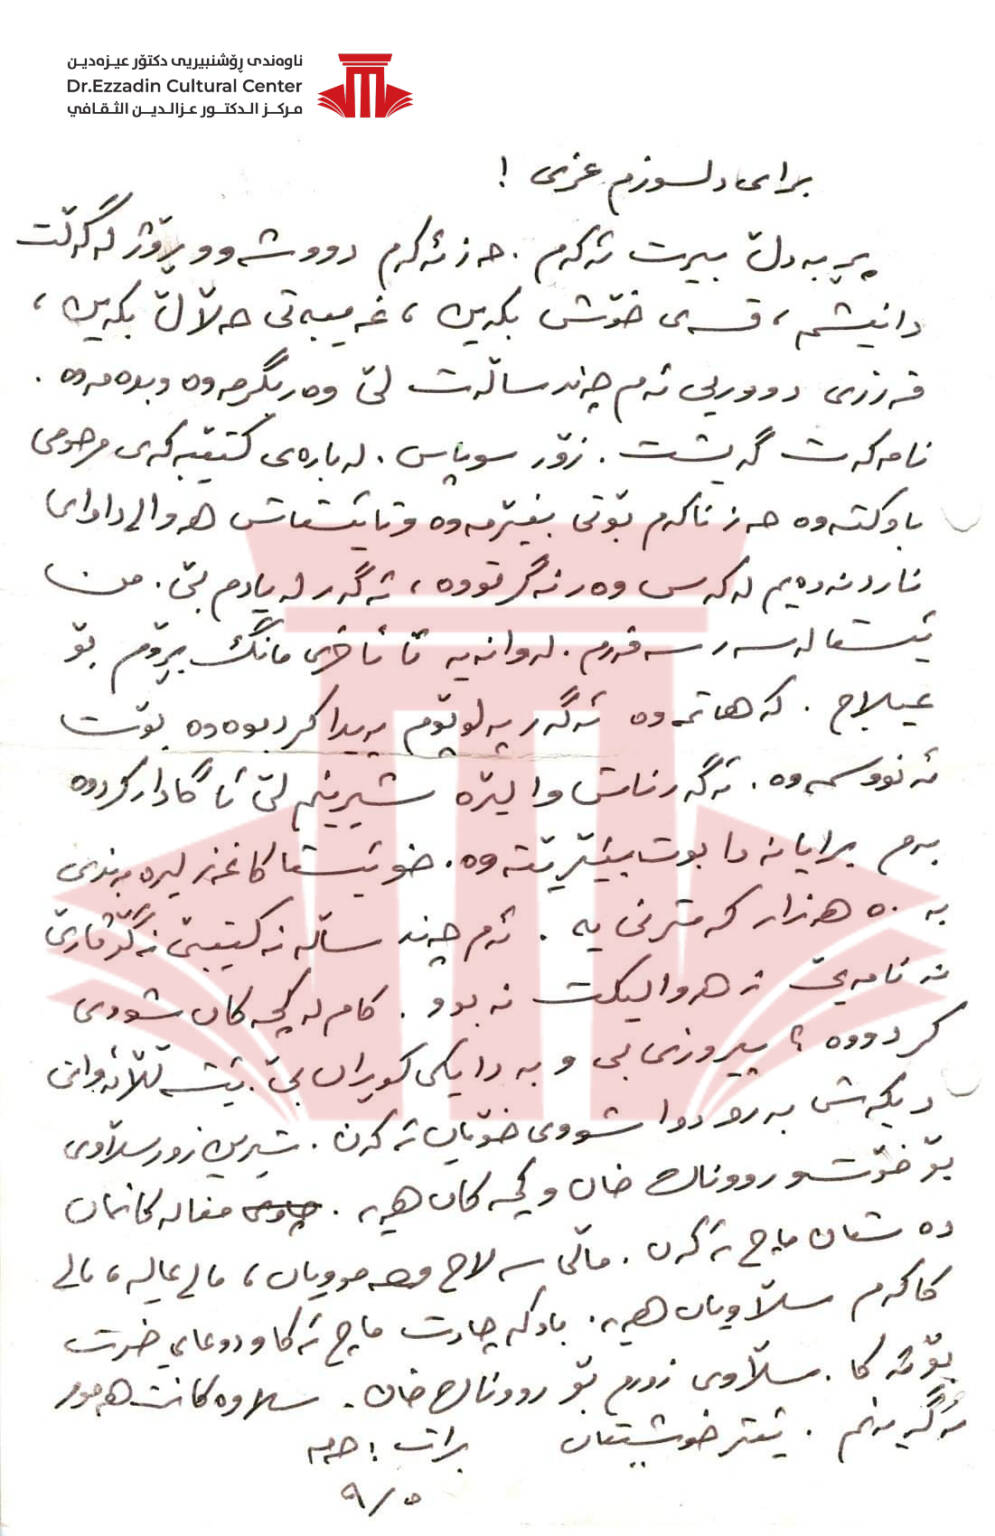 ناوەندی ڕۆشنبیریی دکتۆر عیزەدین
Dr.Ezzadin Cultural Center
مركـز الـدكتــور عـزالـديــن الثـقـافي
برای دلسوزم عزی !
پڕ بە دڵ بیرت ئەکەم . حەز ئەکەم دوو شەو و ڕۆژ لەگەڵت
دانیشم ، قسەی خۆش بکەین ، غەیبەتی حەڵاڵ بکەین ،
قەرزی دووریی ئەم چەند ساڵەت لێ وەربگرمەوە و بدەمەوە .
نامەکەت گەیشت . زۆر سوپاس . لەبارەی کتێبەکەی مرحومی
باوکتەوە حەز ناکەم بۆتی بنێرمەوە و تا ئێستاش هەواڵی داوای
ناردنەوەیم لە کەس وەرنەگرتووە ، ئەگەر لە یادم بێ . من
ئێستا لەسەر سەفەرم . لەوانەیە تا ئاخری مانگ بڕۆم بۆ
عیلاج . کە هاتمەوە ئەگەر پەلوپۆم پەیدا کردبووەوە بۆت
ئەنووسمەوە . ئەگەرناش وا لێرە شیرینم لێ ئاگادار کردوە
بەم برایانەدا بۆت بنێرێتەوە . خۆ ئێستا کاغەز لیرە بەندی
بە ٥٠ هەزار کەمتر نی یە . ئەم چەند ساڵە نە کتێبێ نە گۆڤارێ
نە نامەیێ نە هەواڵیکت نەبوو . کام لە کچەکان شووی
کردووە ؟ پیرۆزی بی و بە دایکی کوڕان بێ . ئیشەڵڵا ئەوانی
دیکەش بەرەو دوا شووی خۆیان ئەکەن . شیرین زۆر سلاوی
بۆ خۆت و رووناک خان و کچەکان هەیە . منالەکانمان
دەستان ماچ ئەکەن . ماڵی سەلاح هەموویان ، مالی عالیە ، مالی
کاکەم سلاویان هەیە . باوکە چاوت ماچ ئەکا و دوعای خێرت
بۆ ئەکا . سلاوی زۆرم بۆ رووناک خان . سلاوەکانت هەموو
ئەگەیەنم . ئیتر خۆشیتان برات : حەمە
٩/٥